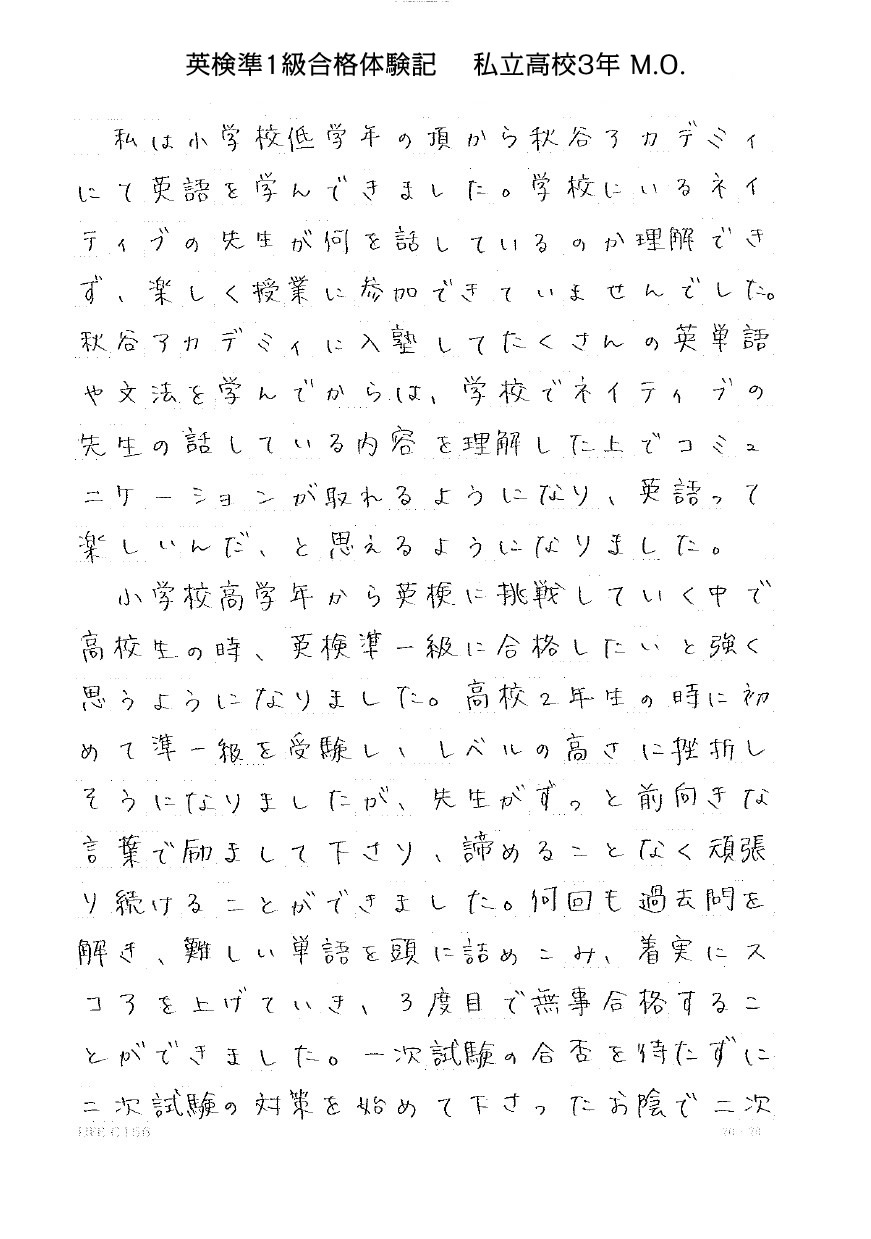 英検準1級合格体験記　私立高校3年 M.O.
私は小学校低学年の頃から秋谷アカデミィ
にて英語を学んできました。学校にいるネイ
ティブの先生が何を話しているのか理解でき
ず、楽しく授業に参加できていませんでした。
秋谷アカデミィに入塾してたくさんの英単語
や文法を学んでからは、学校でネイティブの
先生の話している内容を理解した上でコミュ
ニケーションが取れるようになり、英語って
楽しいんだ、と思えるようになりました。
小学校高学年から英検に挑戦していく中で
高校生の時、英検準一級に合格したいと強く
思うようになりました。高校2年生の時に初
めて準一級を受験し、レベルの高さに挫折し
そうになりましたが、先生がずっと前向きな
言葉で励まして下さり、諦めることなく頑張
り続けることができました。何回も過去問を
解き、難しい単語を頭に詰めこみ、着実にス
コアを上げていき、3度目で無事合格するこ
とができました。一次試験の合否を待たずに
二次試験の対策を始めて下さったお陰で二次